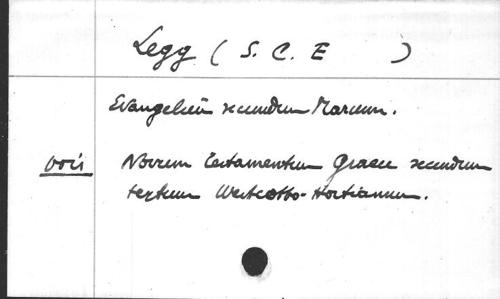 Legg (S. C. E )
Evangelium secundum Marcum.
voir Novum Testamentum Graece secundum
textum Westcotto-Hortianum.